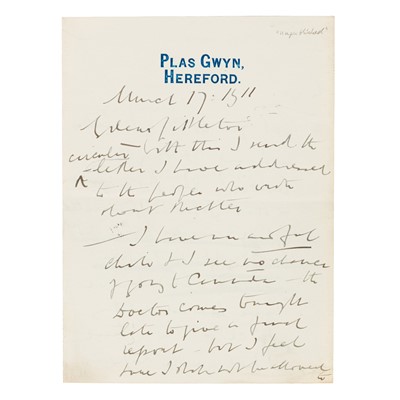 PLAS GWYN,
HEREFORD.
March 17: 1911
My dear Littleton
circular With this I send the
letter I have addressed
to the people who wrote
about Richter
I have an awful
chill & I see no chance
of going to Canada – the
Doctor comes tonight
late to give a final
report – but I feel
sure I shall not be allowed